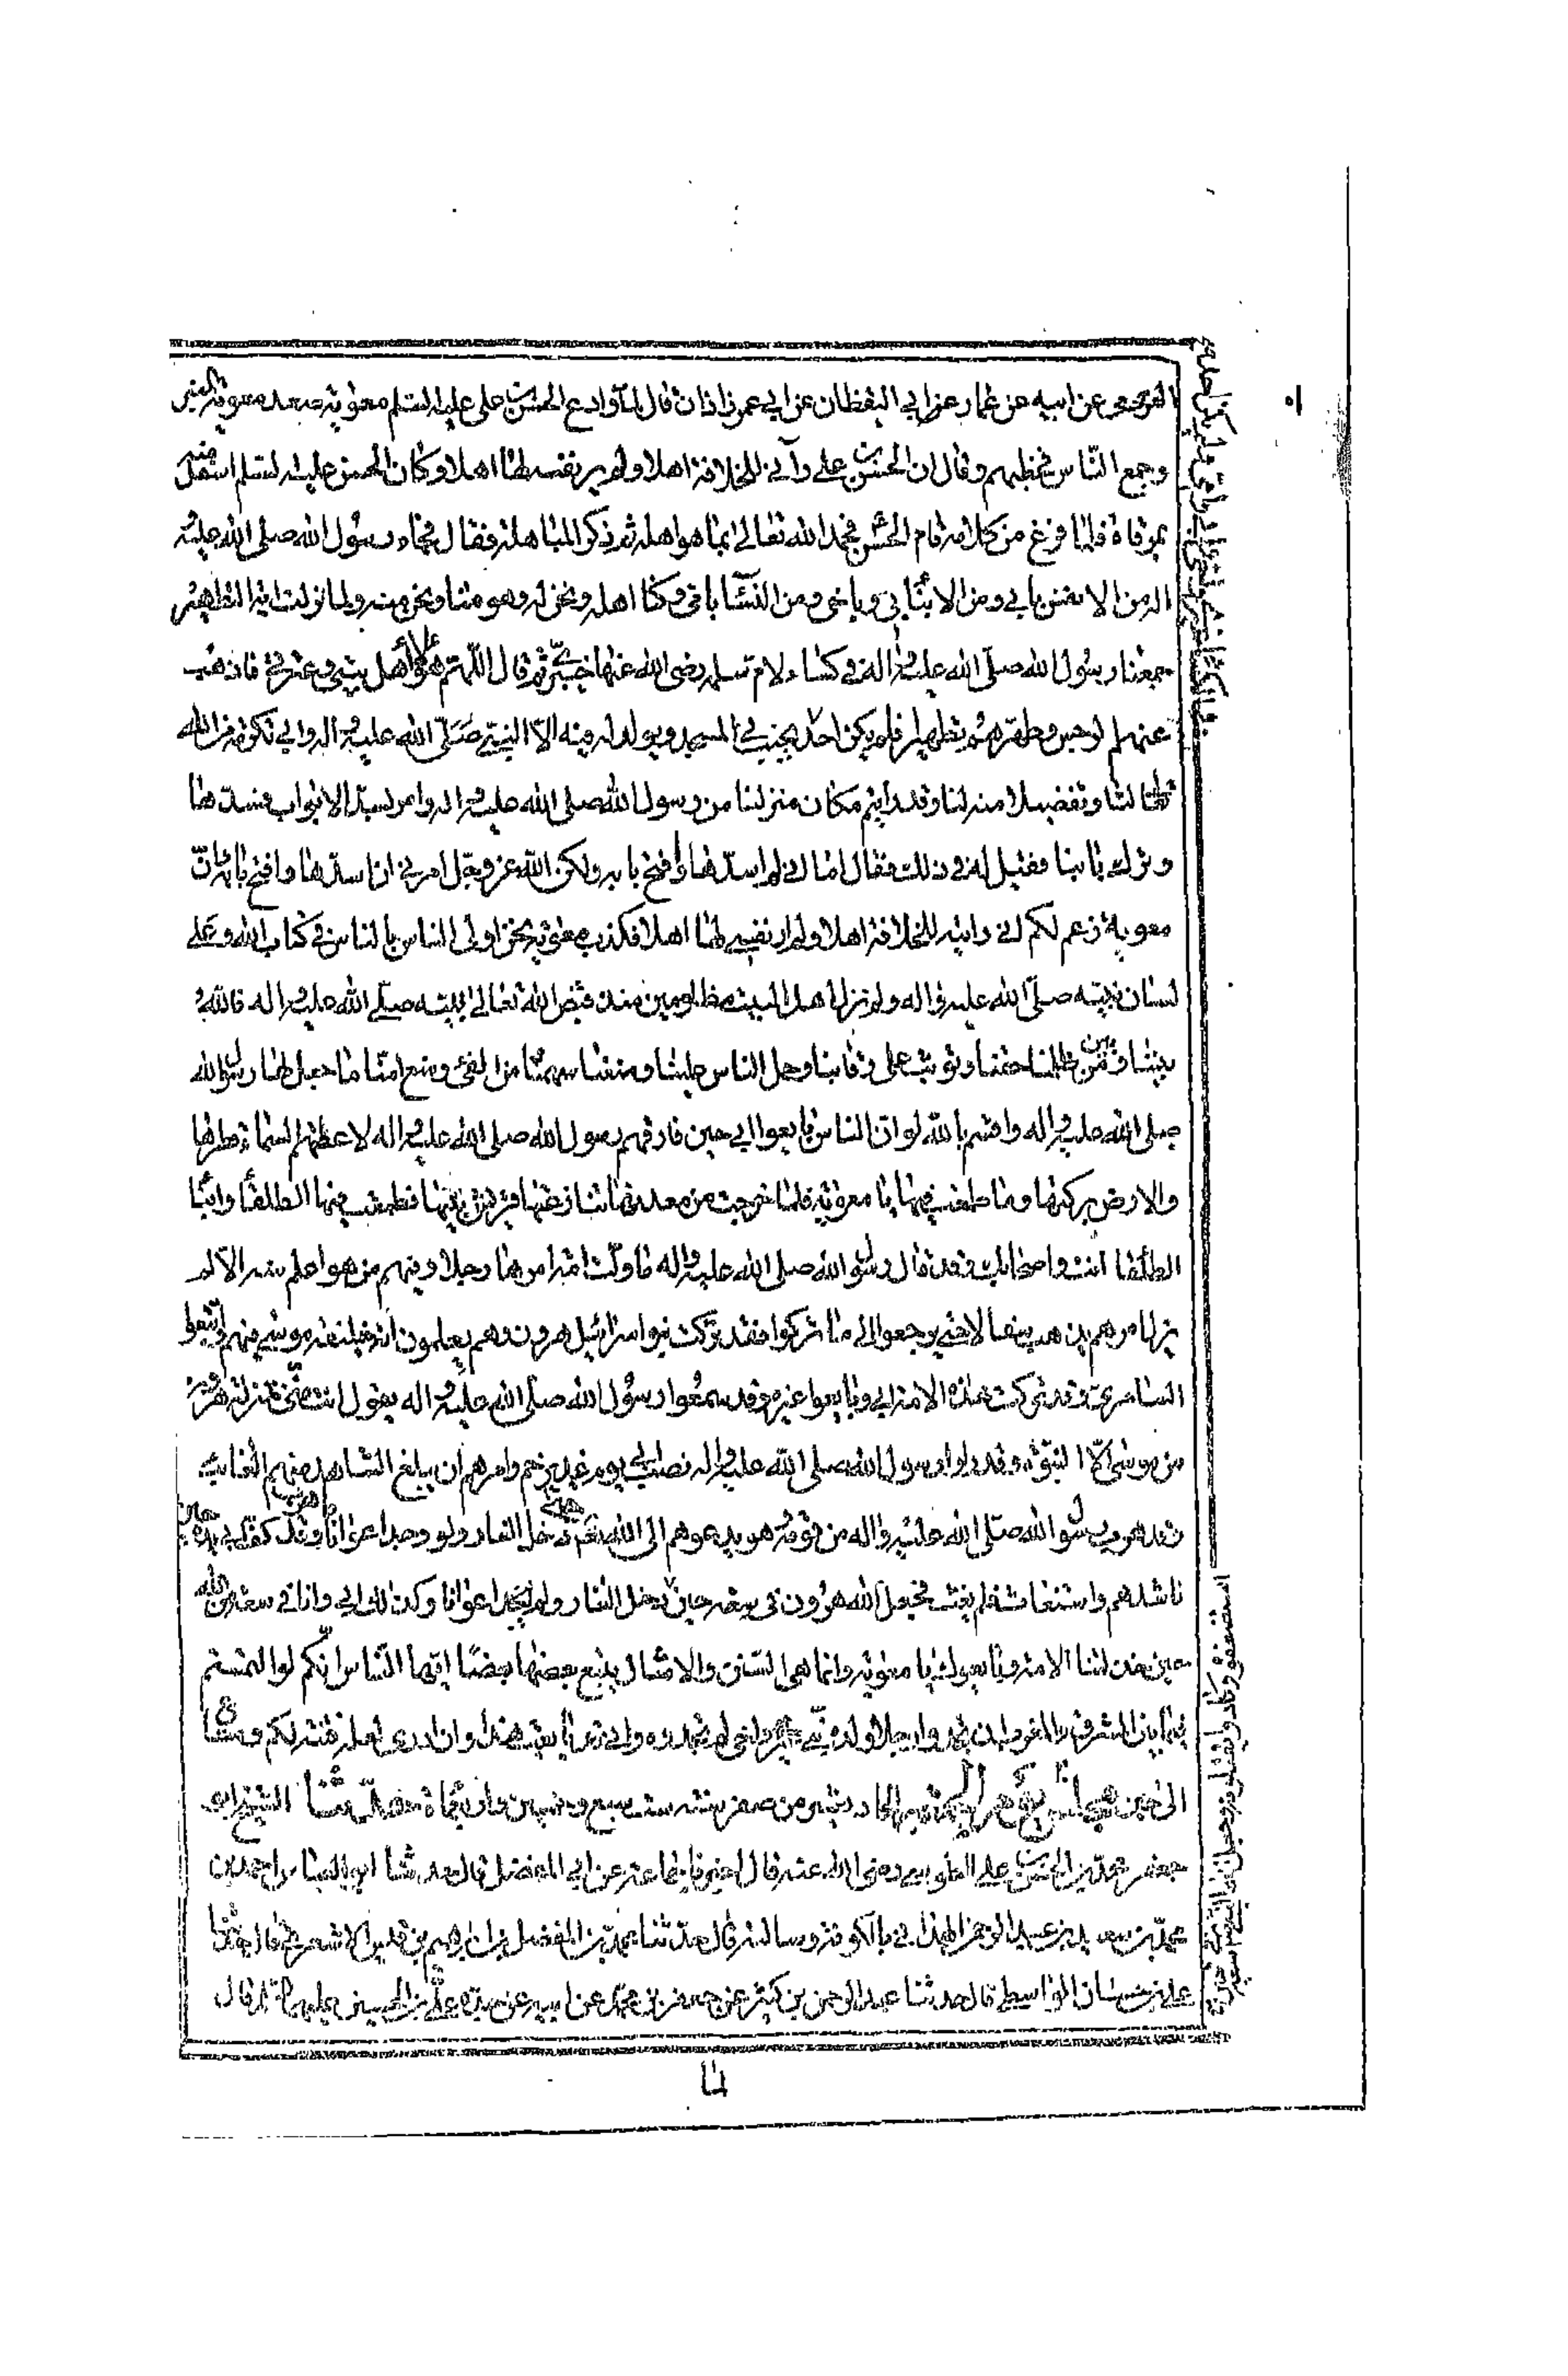 العرزمي عن ابيه عن عمار عن ابي اليقظان عن ابي عمر زاذان قال لما وادع الحسن بن علي عليه السلم معوية صعد معوية المنبر
وجمع الناس فخطبهم وقال ان الحسن بن علي رآني للخلافة اهلا ولم ير نفسه لها اهلا وكان الحسن عليه السلم اسفل منه
بمرقاة فلما فرغ من كلامه قام الحسن فحمد الله تعالى بما هو اهله ثم ذكر المباهلة فقال فجاء رسول الله صلى الله عليه
اله من الانفس بابي ومن الابناء بي وباخي ومن النساء بامي وكنا اهله ونحن له وهو منا ونحن منه ولما نزلت اية التطهير
جمعنا رسول الله صلى الله عليه واله في كساء لام سلمة رضي الله عنها خيبري ثم قال اللهم هؤلاء اهل بيتي وعترتي فاذهب
عنهم الرجس وطهرهم تطهيرا فلم يكن احد يجنب في المسجد ويولد له فيه الا النبي صلى الله عليه واله وابي تكرمة من الله
تعالى لنا وتفضيلا منه لنا وقد رايتم مكان منزلنا من رسول الله صلى الله عليه واله وامر بسد الابواب فسدها
وترك بابنا فقيل له في ذلك فقال اما اني لم اسدها وافتح بابه ولكن الله عز وجل امرني ان اسدها وافتح بابه ان
معوية زعم لكم اني رايته للخلافة اهلا ولم ار نفسي لها اهلا فكذب معوية نحن اولى الناس بالناس في كتاب الله وعلى
لسان نبيه صلى الله عليه واله ولم نزل اهل البيت مظلومين منذ قبض الله تعالى نبيه صلى الله عليه واله فالله
بيننا وبين من ظلمنا حقنا وتوثب على رقابنا وحمل الناس علينا ومنعنا سهمنا من الفئ ومنع امنا ما جعل لها رسول الله
صلى الله عليه واله واقسم بالله لو ان الناس بايعوا ابي حين فارقهم رسول الله صلى الله عليه واله لاعطتهم السماء قطرها
والارض بركتها وما طمعت فيها يا معوية فلما خرجت من معدنها تنازعتها قريش بينها فطمعت فيها الطلقاء وابناء
الطلقاء انت واصحابك وقد قال رسول الله صلى الله عليه واله ما ولت امة امرها رجلا وفيهم من هو اعلم منه الا لم
يزل امرهم يذهب سفالا حتى يرجعوا الى ما تركوا فقد تركت بنو اسرائيل هرون وهم يعلمون انه خليفة موسى فيهم واتبعوا
السامري وقد تركت هذه الامة ابي وبايعوا غيره وقد سمعوا رسول الله صلى الله عليه واله يقول انت مني بمنزلة هرون
من موسى الا النبوة وقد راوا رسول الله صلى الله عليه واله نصب ابي يوم غدير خم وامرهم ان يبلغ الشاهد منهم الغايب
وقد هرب رسول الله صلى الله عليه واله من قومه هو يدعوهم الى الله تعالى حتى دخل الغار ولو وجد اعوانا ما هرب وقد كف ابي يده حين
ناشدهم واستغاث فلم يغث فجعل الله هرون في سعة حين دخل النار ولم يجد اعوانا وكذلك ابي وانا في سعة من الله
حين خذلتنا الامة وبايعوك يا معوية وانما هي السنن والامثال يتبع بعضها بعضا ايها الناس انكم لو التمستم
فيما بين المشرق والمغرب ان تجدوا رجلا ولده نبي غيري واخي لم تجدوه واني قد بايعت هذا وان ادري لعله فتنة لكم ومتاع
الى حين مجلس يوم الحادي عشر من صفر سنة سبع وخمسين واربعمائة حدثنا الشيخ ابو
جعفر محمد بن الحسن بن علي الطوسي رضي الله عنه قال اخبرنا جماعة عن ابي المفضل قال حدثنا ابو العباس احمد بن
محمد بن سعيد بن عبد الرحمن الهمداني بالكوفة وسالته قال حدثنا محمد بن المفضل بن ابرهيم بن قيس الاشعري قال حدثنا
علي بن حسان الواسطي قال حدثنا عبد الرحمن بن كثير عن جعفر بن محمد عن ابيه عن جده علي بن الحسين عليهم السلم قال
لما
استضعفوه وكادوا يقتلونه